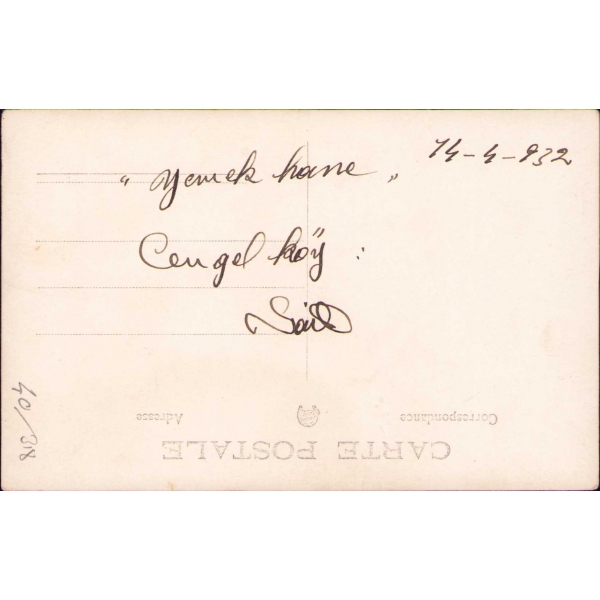 14-4-932
„ Yemek hane „
Cengel köy :
Said
40/318
Correspondance Adresse
CARTE POSTALE